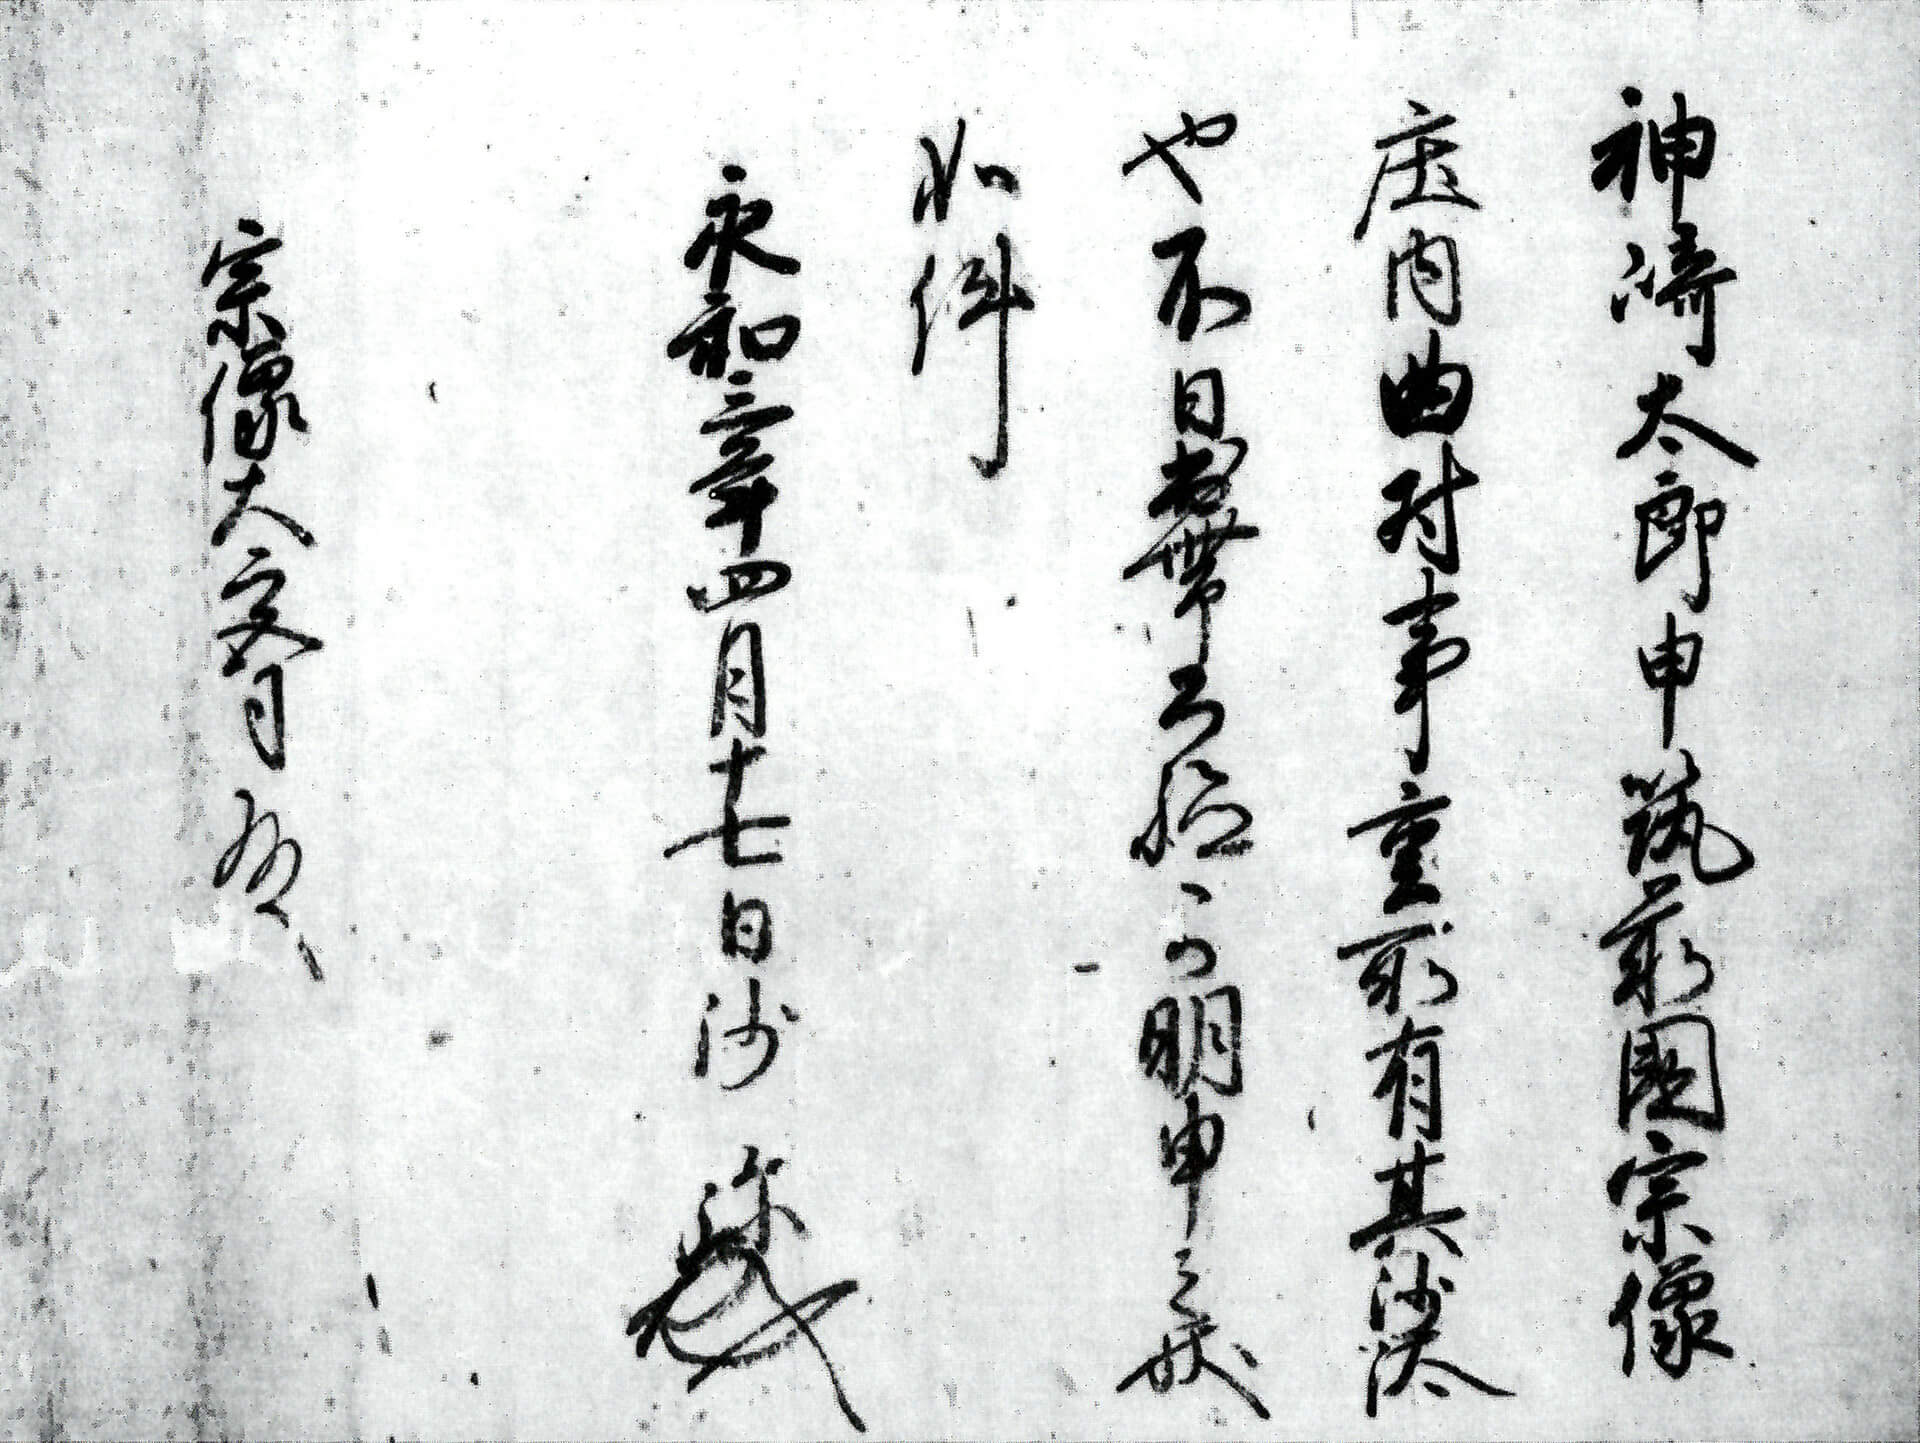 神崎太郎申筑前國宗像
庄内曲村事重所有其沙汰
也不日帯文證可明申之状
如件
永和三年四月十七日沙弥
宗像大宮司殿